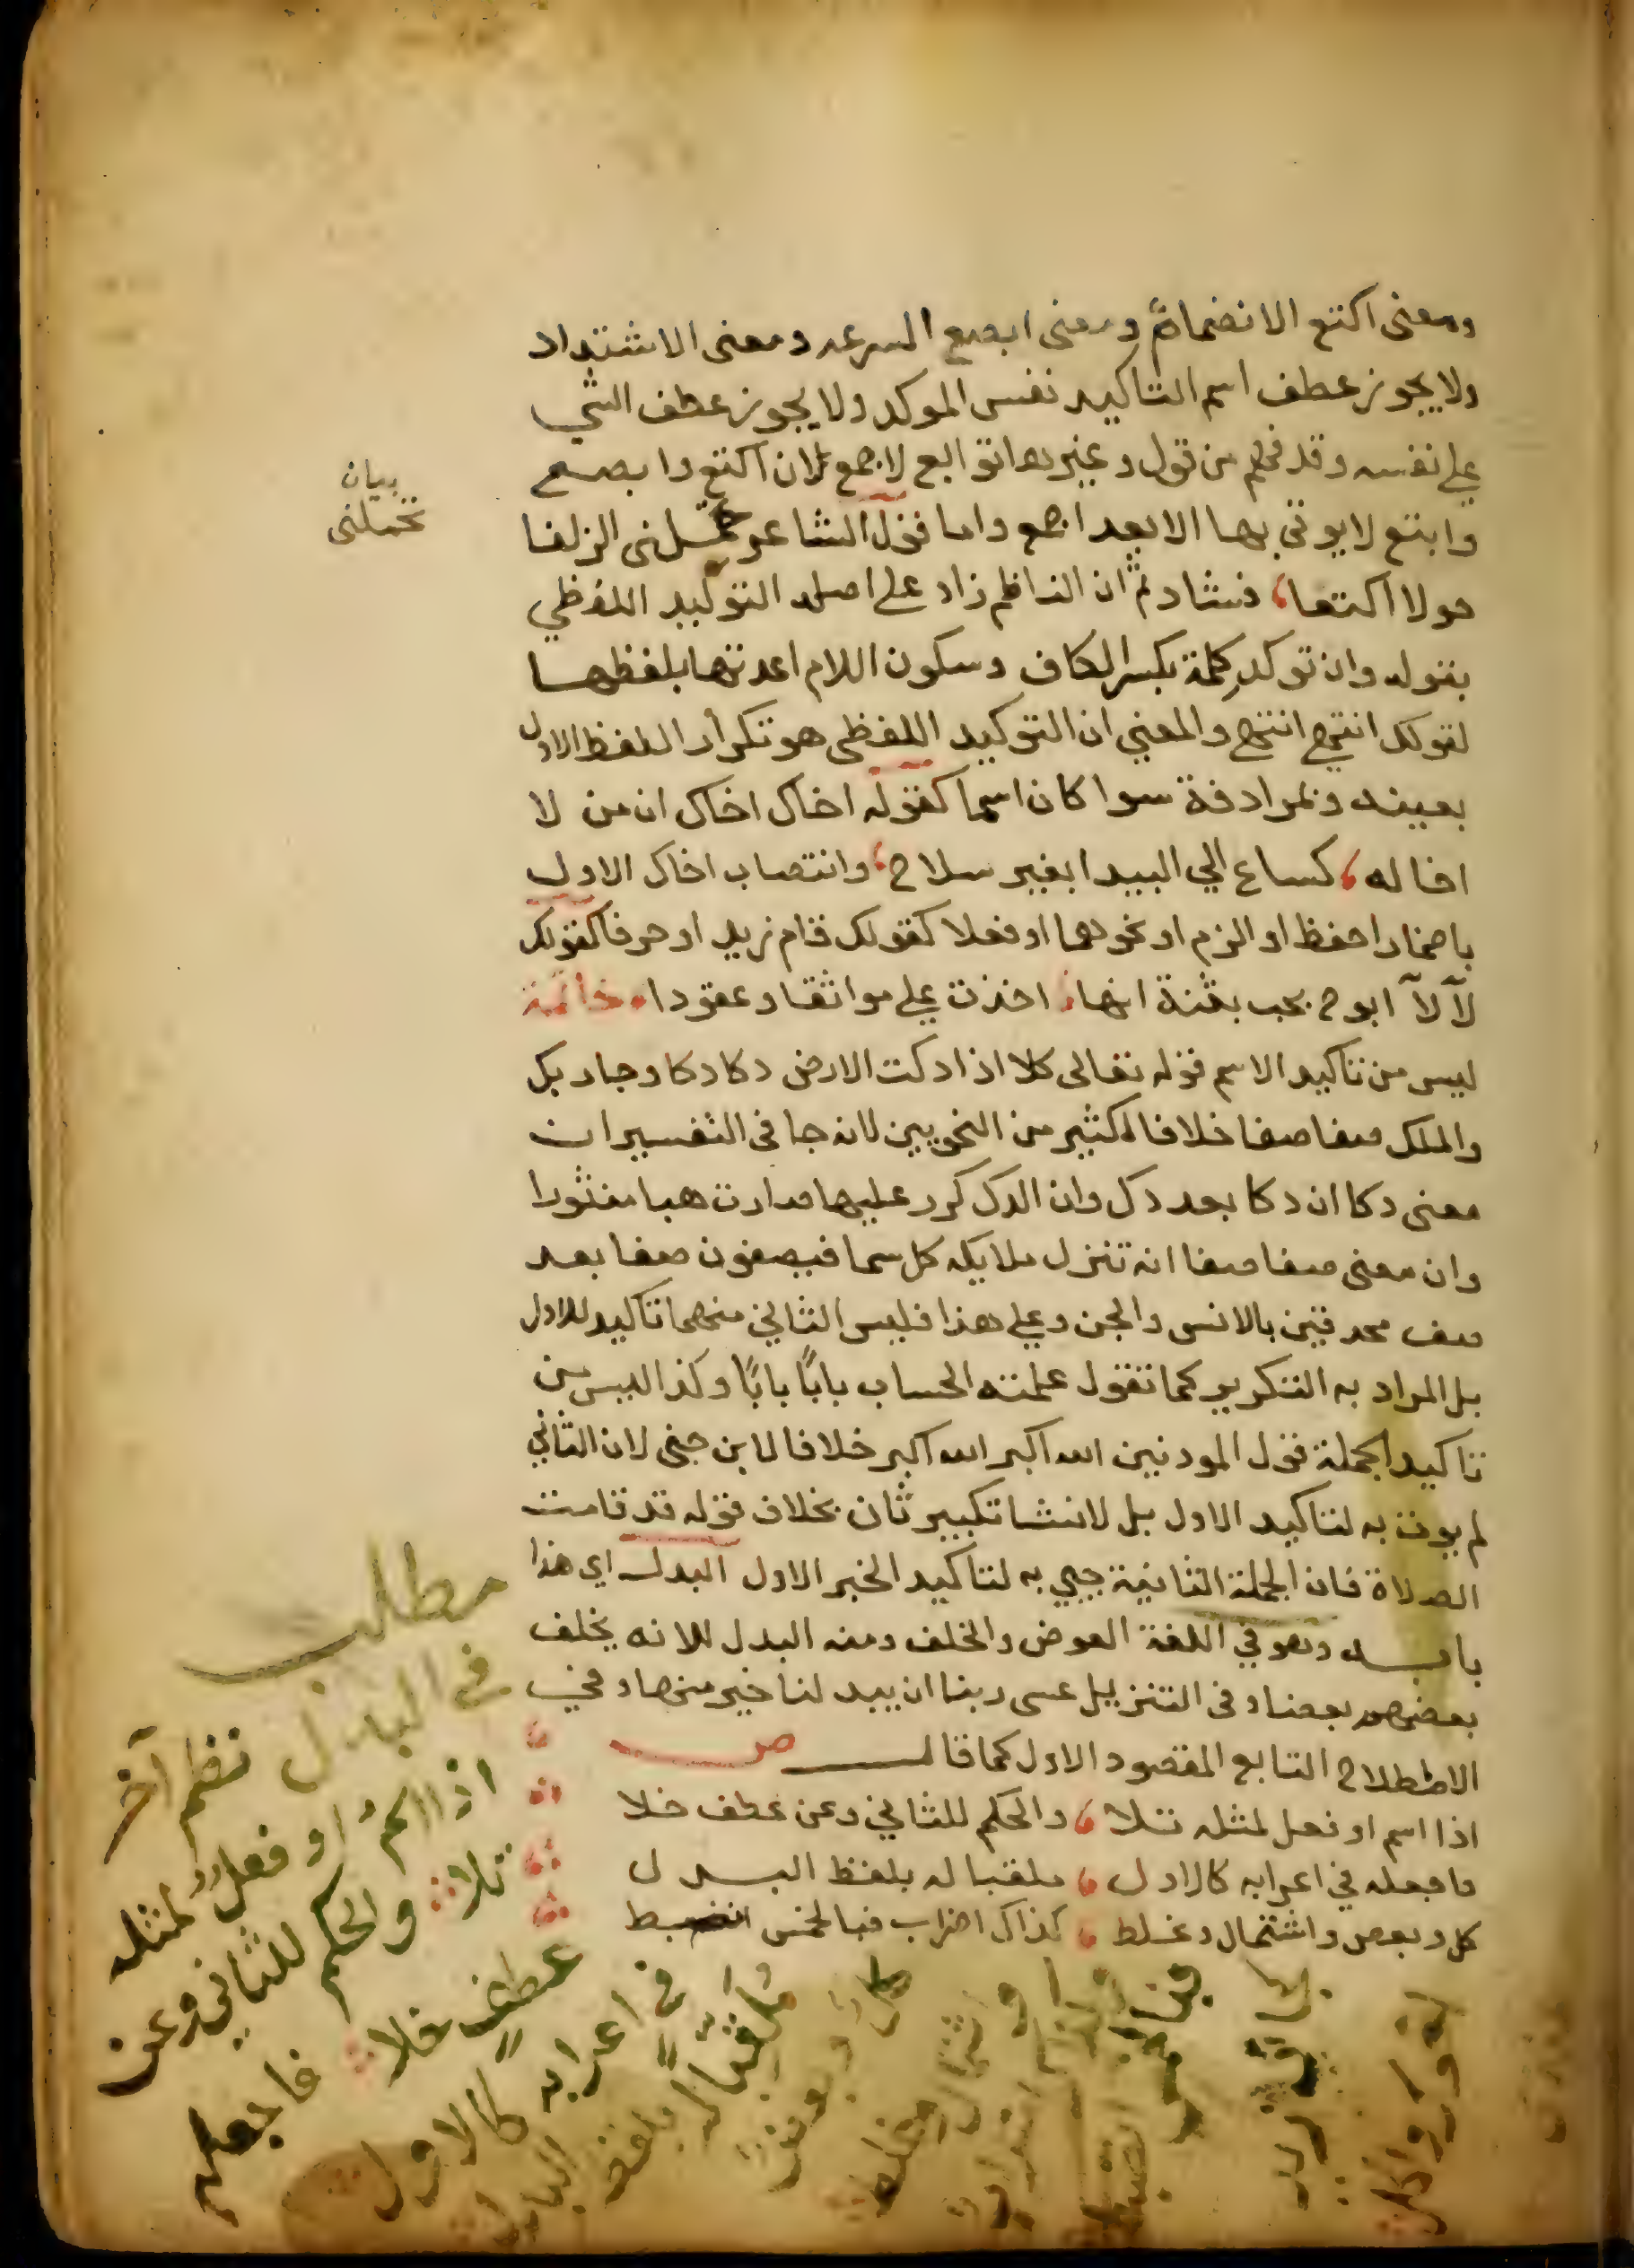 ومعنى اكتع الانضمام ومعنى ابصع السرعه ومعنى الاشتداد
ولا يجوز عطف اسم التاكيد نفس الموكد ولا يجوز عطف الشي
علي نفسه وقد فهم من قول وغيرها توابع لاجمع لان اكتع وابصع
وابتع لا يوتي بها الا بعد اجمع واما قول الشاعر تحملني الزلفا
حولا اكتعا، فشاد ثم ان الناظم زاد على اصله التوكيد اللفظي
بقوله وان توكد كلمة بكسر الكاف وسكون اللام اعدتها بلفظها
لقولك انتح انتح والمعني ان التوكيد اللفظى هو تكرار اللفظ الاول
بعينه وبمرادفة سوا كان اسما كقوله اخاك اخاك ان من لا
اخا له، كساع الي البيدا بغير سلاح، وانتصاب اخاك الاول
باضمار احفظ او الزم او نحوهما او فعلا كقولك قام زيد او حرفا كقولك
لآ لآ ابوح بحب بثنة انها، اخذت علي مواثقا وعقودا، خاتمة
ليس من تاكيد الاسم قوله تعالى كلا اذا دكت الارض دكا دكا وجا ربك
والملك صفا صفا خلافا لكثير من النحويين لانه جا في التفسير ان
معنى دكا ان دكا بعد دك وان الدك كرر عليها صارت هبا منثورا
وان معنى صفا صفا انه تنزل ملايكه كل سما فيصفون صفا بعد
صف محدقين بالانس والجن وعلي هذا فليس الثاني منهما تاكيد للاول
بل المراد به التكرير كما تقول علمته الحساب بابًا بابًا وكذا ليس من
تاكيد الجملة قول الموذنين الله اكبر الله اكبر خلافا لابن جنى لان الثاني
لم يوت به لتاكيد الاول بل لانشا تكبير ثان بخلاف قوله قد قامت
الصلاة فان الجملة الثانية جيي به لتاكيد الخبر الاول البدل اي هذا
بابه وهو في اللغة العوض والخلف ومنه البدل للانه يخلف
بعضهم بعضا وفى التنزيل عسى ربنا ان يبد لنا خير منها وفي
الاصطلاح التابع المقصود الاول كما قال ص
اذا اسم او فعل لمثله تلا، والحكم للثاني وعن عطف خلا
فاجعله في اعرابه كالاول، ملقبا له بلفظ البدل
كل وبعض واشتمال وغلط، كذاك اضراب فبالخمس انضبط
بيان
تحملنى
مطلب
في البدل نظم آخر
اذا اسمٌ او فعلٌ لمثله
تلا والحكم للثاني وعن
عطفٍ خلا فاجعله
في اعرابه كالاول
مُلقّبًا له بلفظ البدل
كلٌ وبعض